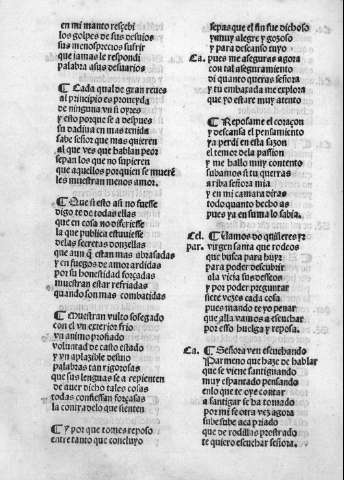 en mi manto rescebi
los golpes de sus desuios
sus menosprecios sufrir
que jamas le respondi
palabra a sus desuarios
¶ Cada qual de gran reues
al principio es proueyda
de ninguna vn si oyres
y esto porque se a despues
su dadiua en mas tenida
sabe señor que mas quieren
al que ves que hablan peor
sepan los que no supieren
que aquellos por quien se muerē
les muestran menos amor.
¶ Que si esto assi no fuesse
digo te de todas ellas
que en cosa no ofreciesse
la que publica estuuiesse
delas secretas donzellas
que aun q̄ estan mas abrasadas
y en fuegos de amor ardidas
por su honestidad forçadas
muestran estar resfriadas
quando son mas combatidas
¶ Muestran vulto sossegado
con el vn exterior frio
vn animo profiado
voluntad de casto estado
y vn aplazible desuio
palabras tan rigorosas
que sus lenguas se arepienten
de auer dicho tales cosas
todas confiessan forçosas
la contra delo que sienten
¶ Y por que tomes reposo
entre tanto que concluyo
sepas que el fin fue dichoso
y muy alegre y gozoso
y para descanso tuyo
Ca. pues me aseguras agora
con tal aseguramiento
di quanto queras señora
y tu embaxada me explora
que yo estare muy atento
¶ Reposa me el coraçon
y descansa el pensamiento
ya perdi en esta sazon
el temor dela passion
y me hallo muy contento
subamos si tu querras
arriba señora mia
y en mi camara diras
todo quanto hecho as
pues ya en suma lo sabia.
Cel. ¶ Vamos do quisieres yr
par. virgen santa que rodeos
que busca para huyr
para poder descubrir
ala vieja sus desseos
y por poder preguntar
siete vezes cada cosa
pues mando te yo penar
que alla vamos a escuchar
por esso huelga y reposa.
Ca. ¶ Señora ven escuchando
Parmeno que haze de hablar
que se viene santiguando
muy espantado pensando
en lo que te oye contar
a santigar se ha tornado
por mi se otra vez agora
sube sube aca priado
que de rodillas prostrado
te quiero escuchar señora.